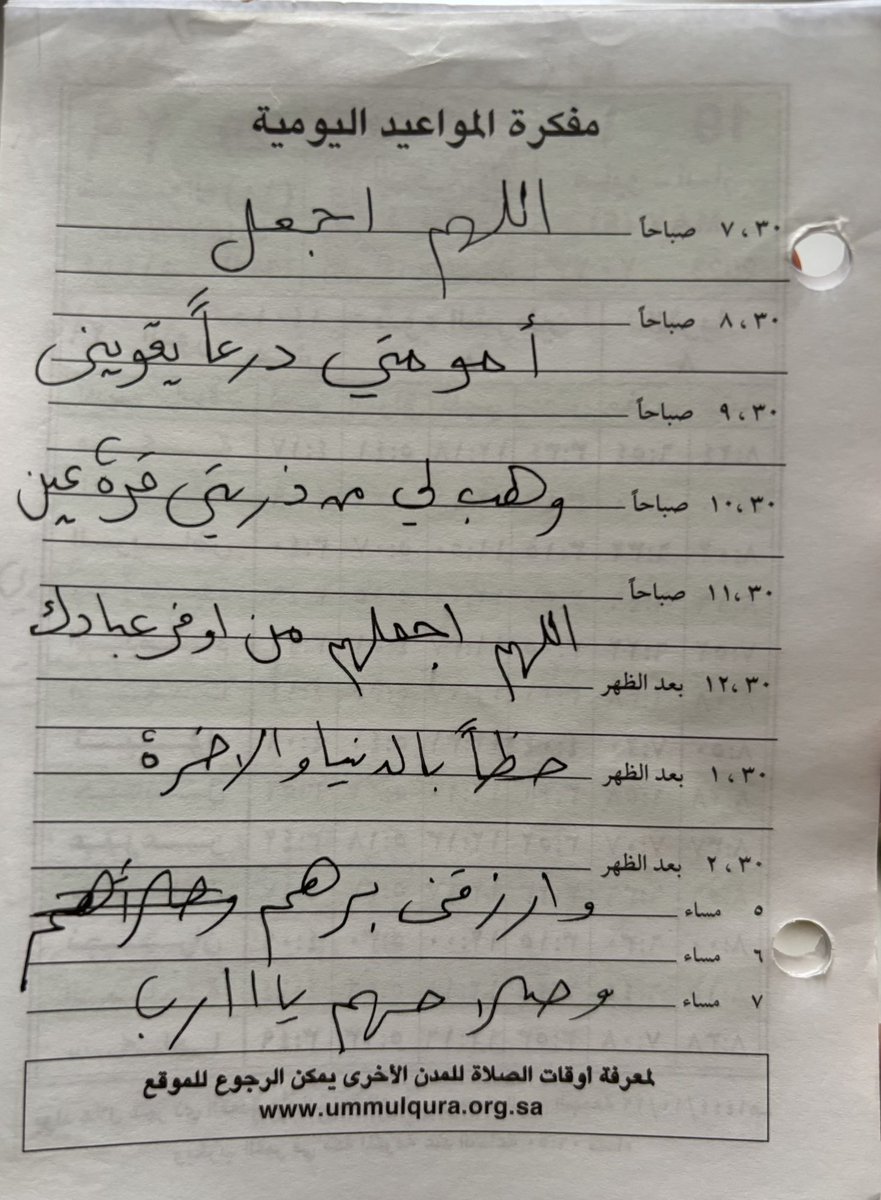 مفكرة المواعيد اليومية
٧،٣٠ صباحاً
اللهم اجعل
٨،٣٠ صباحاً
أمومتي درعاً يقويني
٩،٣٠ صباحاً
وهب لي من ذريتي قرة عين
١٠،٣٠ صباحاً
١١،٣٠ صباحاً
اللهم اجعلهم من اوفر عبادك
١٢،٣٠ بعد الظهر
حظاً بالدنيا والاخرة
١،٣٠ بعد الظهر
٢،٣٠ بعد الظهر
وارزقني برهم
٥ مساء
٦ مساء
وصلاحهم يااارب
٧ مساء
لمعرفة أوقات الصلاة للمدن الأخرى يمكن الرجوع للموقع
www.ummulqura.org.sa